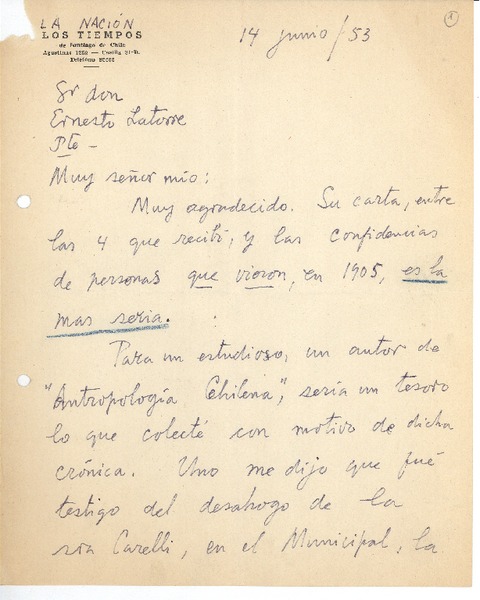 LA NACIÓN
LOS TIEMPOS
de Santiago de Chile
14 junio / 53
1
Sr don
Ernesto Latorre
Pte -
Muy señor mío:
Muy agradecido. Su carta, entre
las 4 que recibí, y las confidencias
de personas que vieron, en 1905, es la
mas seria.
Para un estudioso, un autor de
"Antropología Chilena", sería un tesoro
lo que colecté con motivo de dicha
crónica. Uno me dijo que fué
testigo del desahogo de la
sra Carelli, en el Municipal, la